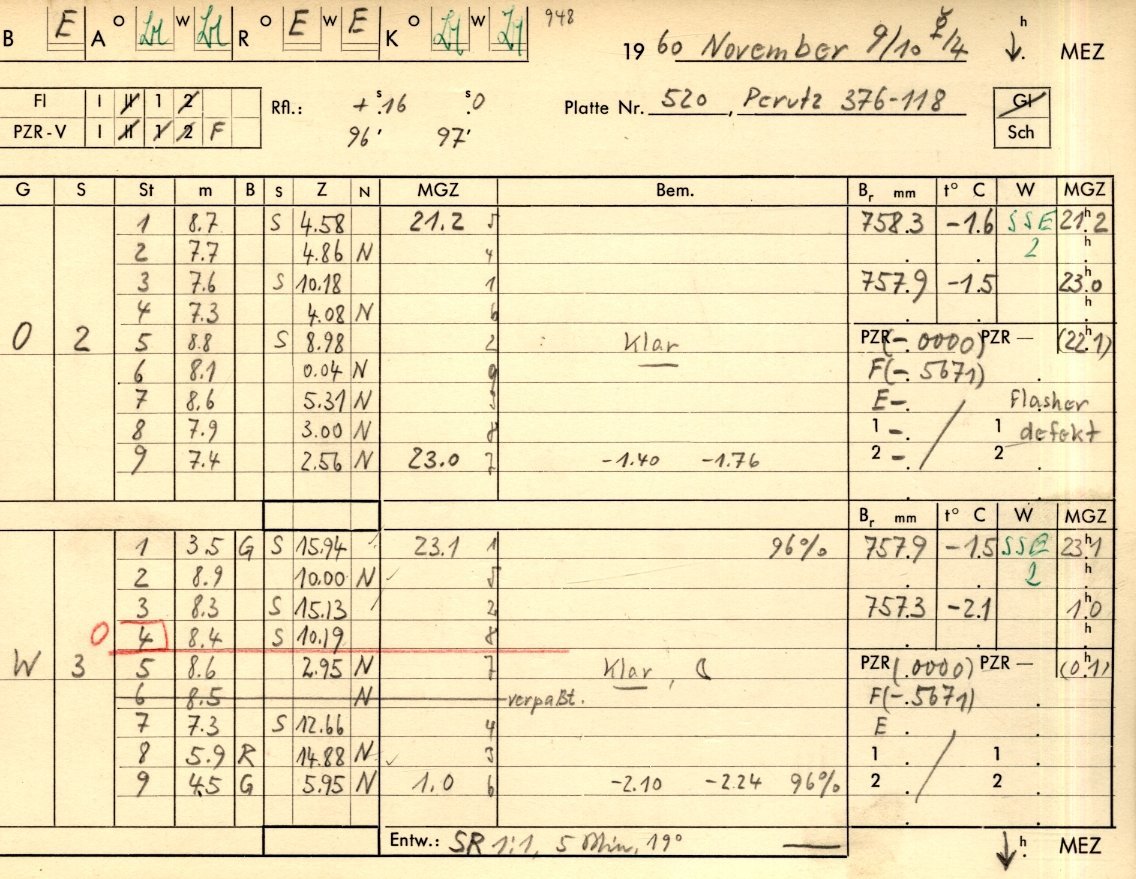 B E A O W R O E W E K O W 948
19 60 November 9/10 ♀/4 h MEZ
Fl I II 1 2 Rfl.: + s.16 s.0 Platte Nr. 520, Perutz 376-118 Gl
PZR-V I II 1 2 F 96' 97' Sch
G S St m B S Z N MGZ Bem. Br mm t° C W MGZ
1 8.7 S 4.58 21.2 5 758.3 -1.6 SSE 21h.2
2 7.7 4.86 N 4 2 h
3 7.6 S 10.18 1 757.9 -1.5 23h.0
4 7.3 4.08 N 6 h
O 2 5 8.8 S 8.98 2 Klar PZR (-.0000) PZR — (22h.1)
6 8.1 0.04 N 9 F(-.5671)
7 8.6 5.31 N 3 E-. / Flasher
8 7.9 3.00 N 8 1 -. 1 defekt
9 7.4 2.56 N 23.0 7 -1.40 -1.76 2 -. 2
Br mm t° C W MGZ
1 3.5 G S 15.94 23.1 1 96% 757.9 -1.5 SSE 23h.1
2 8.9 10.00 N 5 2 h
3 8.3 S 15.13 2 757.3 -2.1 1h.0
O 4 8.4 S 10.19 8 h
W 3 5 8.6 2.95 N 7 Klar, ☾ PZR (.0000) PZR — (0h.1)
6 8.5 N verpaßt. F(-.5671)
7 7.3 S 12.66 4 E .
8 5.9 R 14.88 N 3 1 . / 1
9 4.5 G 5.95 N 1.0 6 -2.10 -2.24 96% 2 . 2 .
Entw.: SR 1:1, 5 Min, 19° — h MEZ